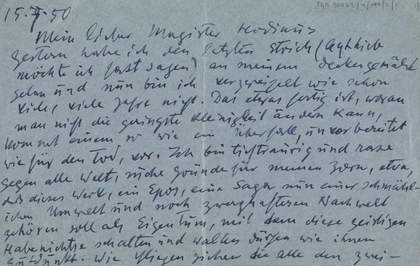 15. X 50
Mein lieber Magister Ludimus
gestern habe ich den letzten Strich (
möchte ich fast sagen) an meinem Deckengemälde
getan und nun bin ich verzweifelt wie schon
viele, viele Jahre nicht. Das etwas fertig ist, woran
man nicht die geringste Kleinigkeit ändern kann,
kommt einem so wie ein Überfall, unvorbereitet
wie für den Tod, vor. Ich bin tieftraurig und rase
gegen alle Welt, suche Gründe für meinen Zorn, etwa,
daß dieses Werk, ein Epos, eine Saga nun einer schmäh
lichen Umwelt und noch zwerghafteren Nachwelt
gehören soll als Eigentum, mit dem diese geistigen
Habenichtse schalten und walten dürfen wie ihnen
gutdünkt. Wie Fliegen ziehen sie alle den zwei-